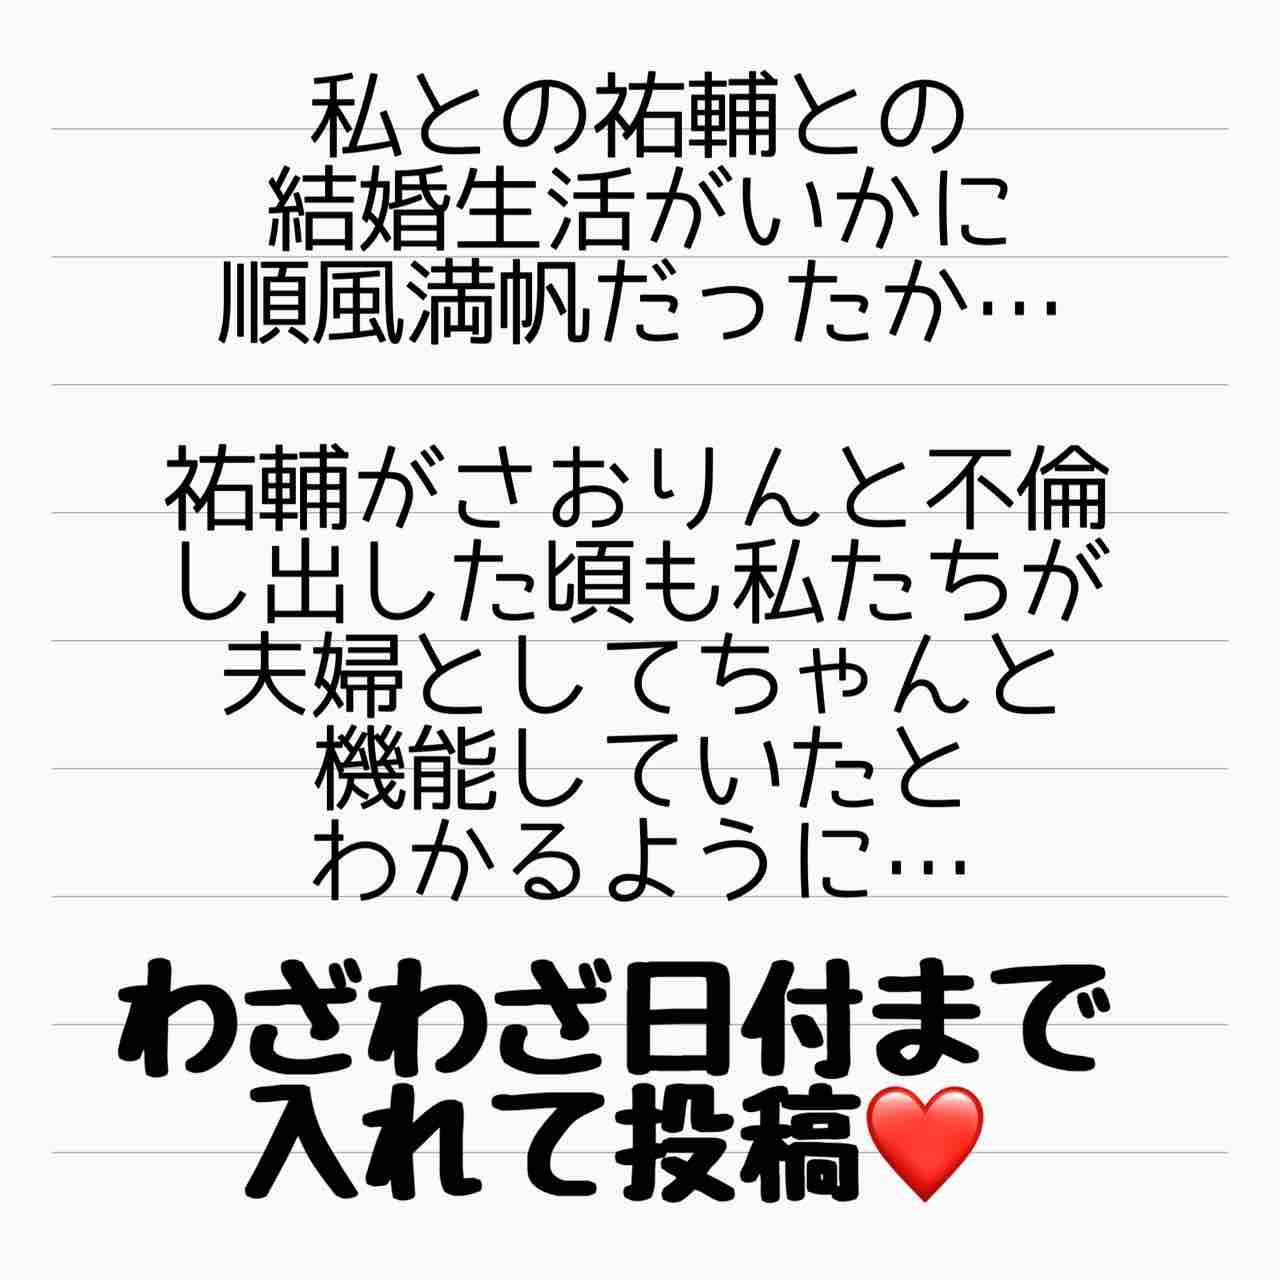 私との祐輔との
結婚生活がいかに
順風満帆だったか…
祐輔がさおりんと不倫
し出した頃も私たちが
夫婦としてちゃんと
機能していたと
わかるように…
わざわざ日付まで
入れて投稿❤️